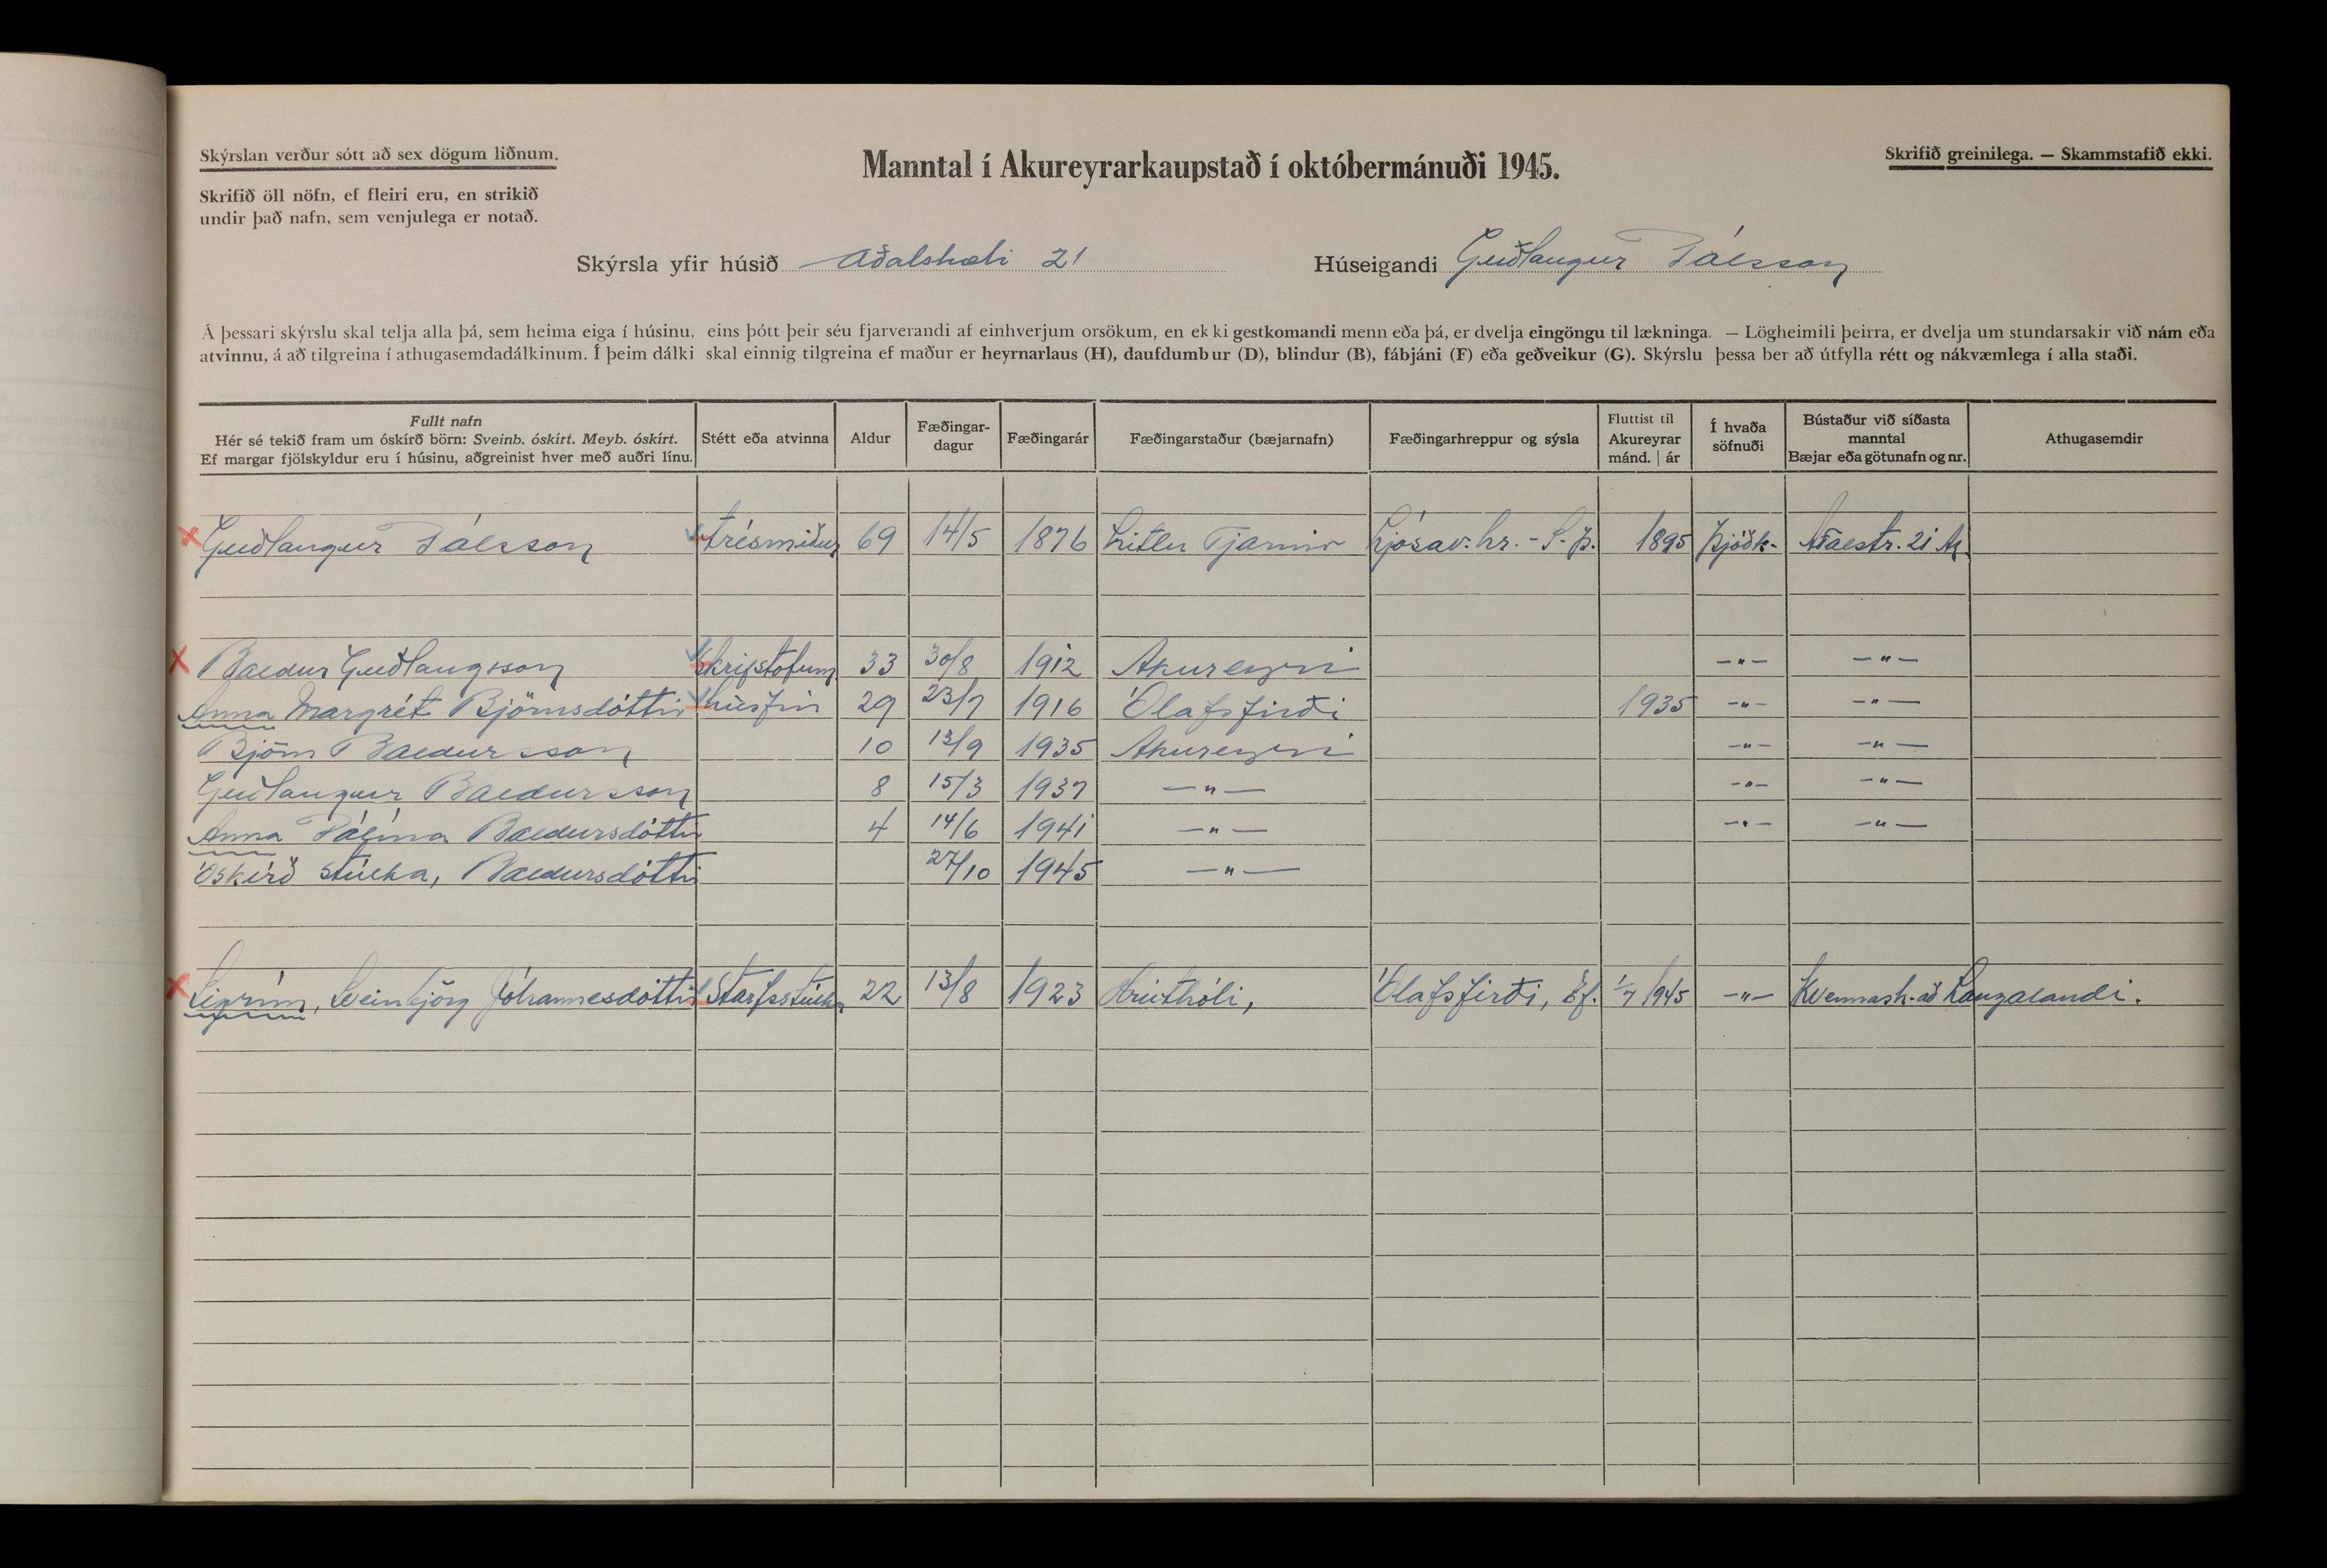 Skýrslan verður sótt að sex dögum liðnum.
Skrifið öll nöfn, ef fleiri eru, en strikið
undir það nafn, sem venjulega er notað.
Manntal í Akureyrarkaupstað í októbermánuði 1945.
Skrifið greinilega. — Skammstafið ekki.
Skýrsla yfir húsið Aðalstræti 21 Húseigandi Guðlaugur Pálsson
Á þessari skýrslu skal telja alla þá, sem heima eiga í húsinu, eins þótt þeir séu fjarverandi af einhverjum orsökum, en ekki gestkomandi menn eða þá, er dvelja eingöngu til lækninga. — Lögheimili þeirra, er dvelja um stundarsakir við nám eða
atvinnu, á að tilgreina í athugasemdadálkinum. Í þeim dálki skal einnig tilgreina ef maður er heyrnarlaus (H), daufdumbur (D), blindur (B), fábjáni (F) eða geðveikur (G). Skýrslu þessa ber að útfylla rétt og nákvæmlega í alla staði.
Fullt nafn
Hér sé tekið fram um óskírð börn: Sveinb. óskírt. Meyb. óskírt.
Ef margar fjölskyldur eru í húsinu, aðgreinist hver með auðri línu.
Stétt eða atvinna
Aldur
Fæðingar-
dagur
Fæðingarár
Fæðingarstaður (bæjarnafn)
Fæðingarhreppur og sýsla
Fluttist til
Akureyrar
mánd. | ár
Í hvaða
söfnuði
Bústaður við síðasta
manntal
Bæjar eða götunafn og nr.
Athugasemdir
Guðlaugur Pálsson trésmiður 69 14/5 1876 Litlu Tjarnir Ljósav.hr. - S-Þ. 1895 Þjóðk. Aðalstr. 21 Ak.
Baldur Guðlaugsson Skrifstofum 33 30/8 1912 Akureyri —"— —"—
Anna Margrét Björnsdóttir húsfrú 29 23/7 1916 Ólafsfirði 1935 —"— —"—
Björn Baldursson 10 13/9 1935 Akureyri —"— —"—
Guðlaugur Baldursson 8 15/3 1937 —"— —"— —"—
Anna Pálína Baldursdóttir 4 14/6 1941 —"— —"— —"—
Óskírð stúlka, Baldursdóttir 27/10 1945 —"—
Sigrún, Sveinbjörg Jóhannesdóttir Starfsstúlka 22 13/8 1923 Hrúthóli, Ólafsfirði, Ef. 1/7 1945 —"— Kvennask. að Laugalandi.